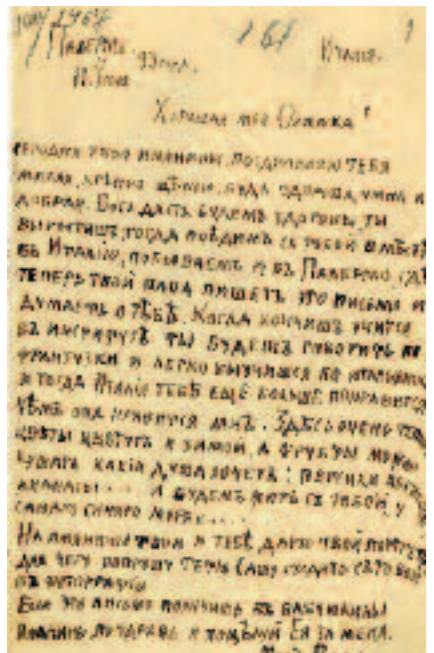 161
Италiя.
Хорошая моя Олюшка!
Сегодня твои именины, поздравляю тебя
милая, крѣпко цѣлую, будь здорова, умна и
добрая. Богъ дастъ будемъ здоровы, ты
выростишь, тогда поѣдимъ съ тобой вмѣстѣ
въ Италiю, побываемъ и въ Палермо, гдѣ
теперь твой папа пишетъ это письмо и
думаетъ о тебѣ. Когда кончишь учится
въ институтѣ ты будешь говорить по
французки и легко выучишся по
и тогда Италiя тебѣ ещё больше понравится
чѣмъ она нравится мнѣ. Здѣсь очень тепло
цвѣты цвѣтутъ и зимой, а фрукты можно
кушать какiя душа хочетъ: персики
ананасы.... А будемъ жить съ тобой, у
самаго синяго моря....
На именины твои я тебѣ дарю твой портретъ
для чего попрошу тётю Сашу сходить съ тобой
въ фотографiю
Если это письмо получишь въ
поздравь и поцѣлуй Её за меня.